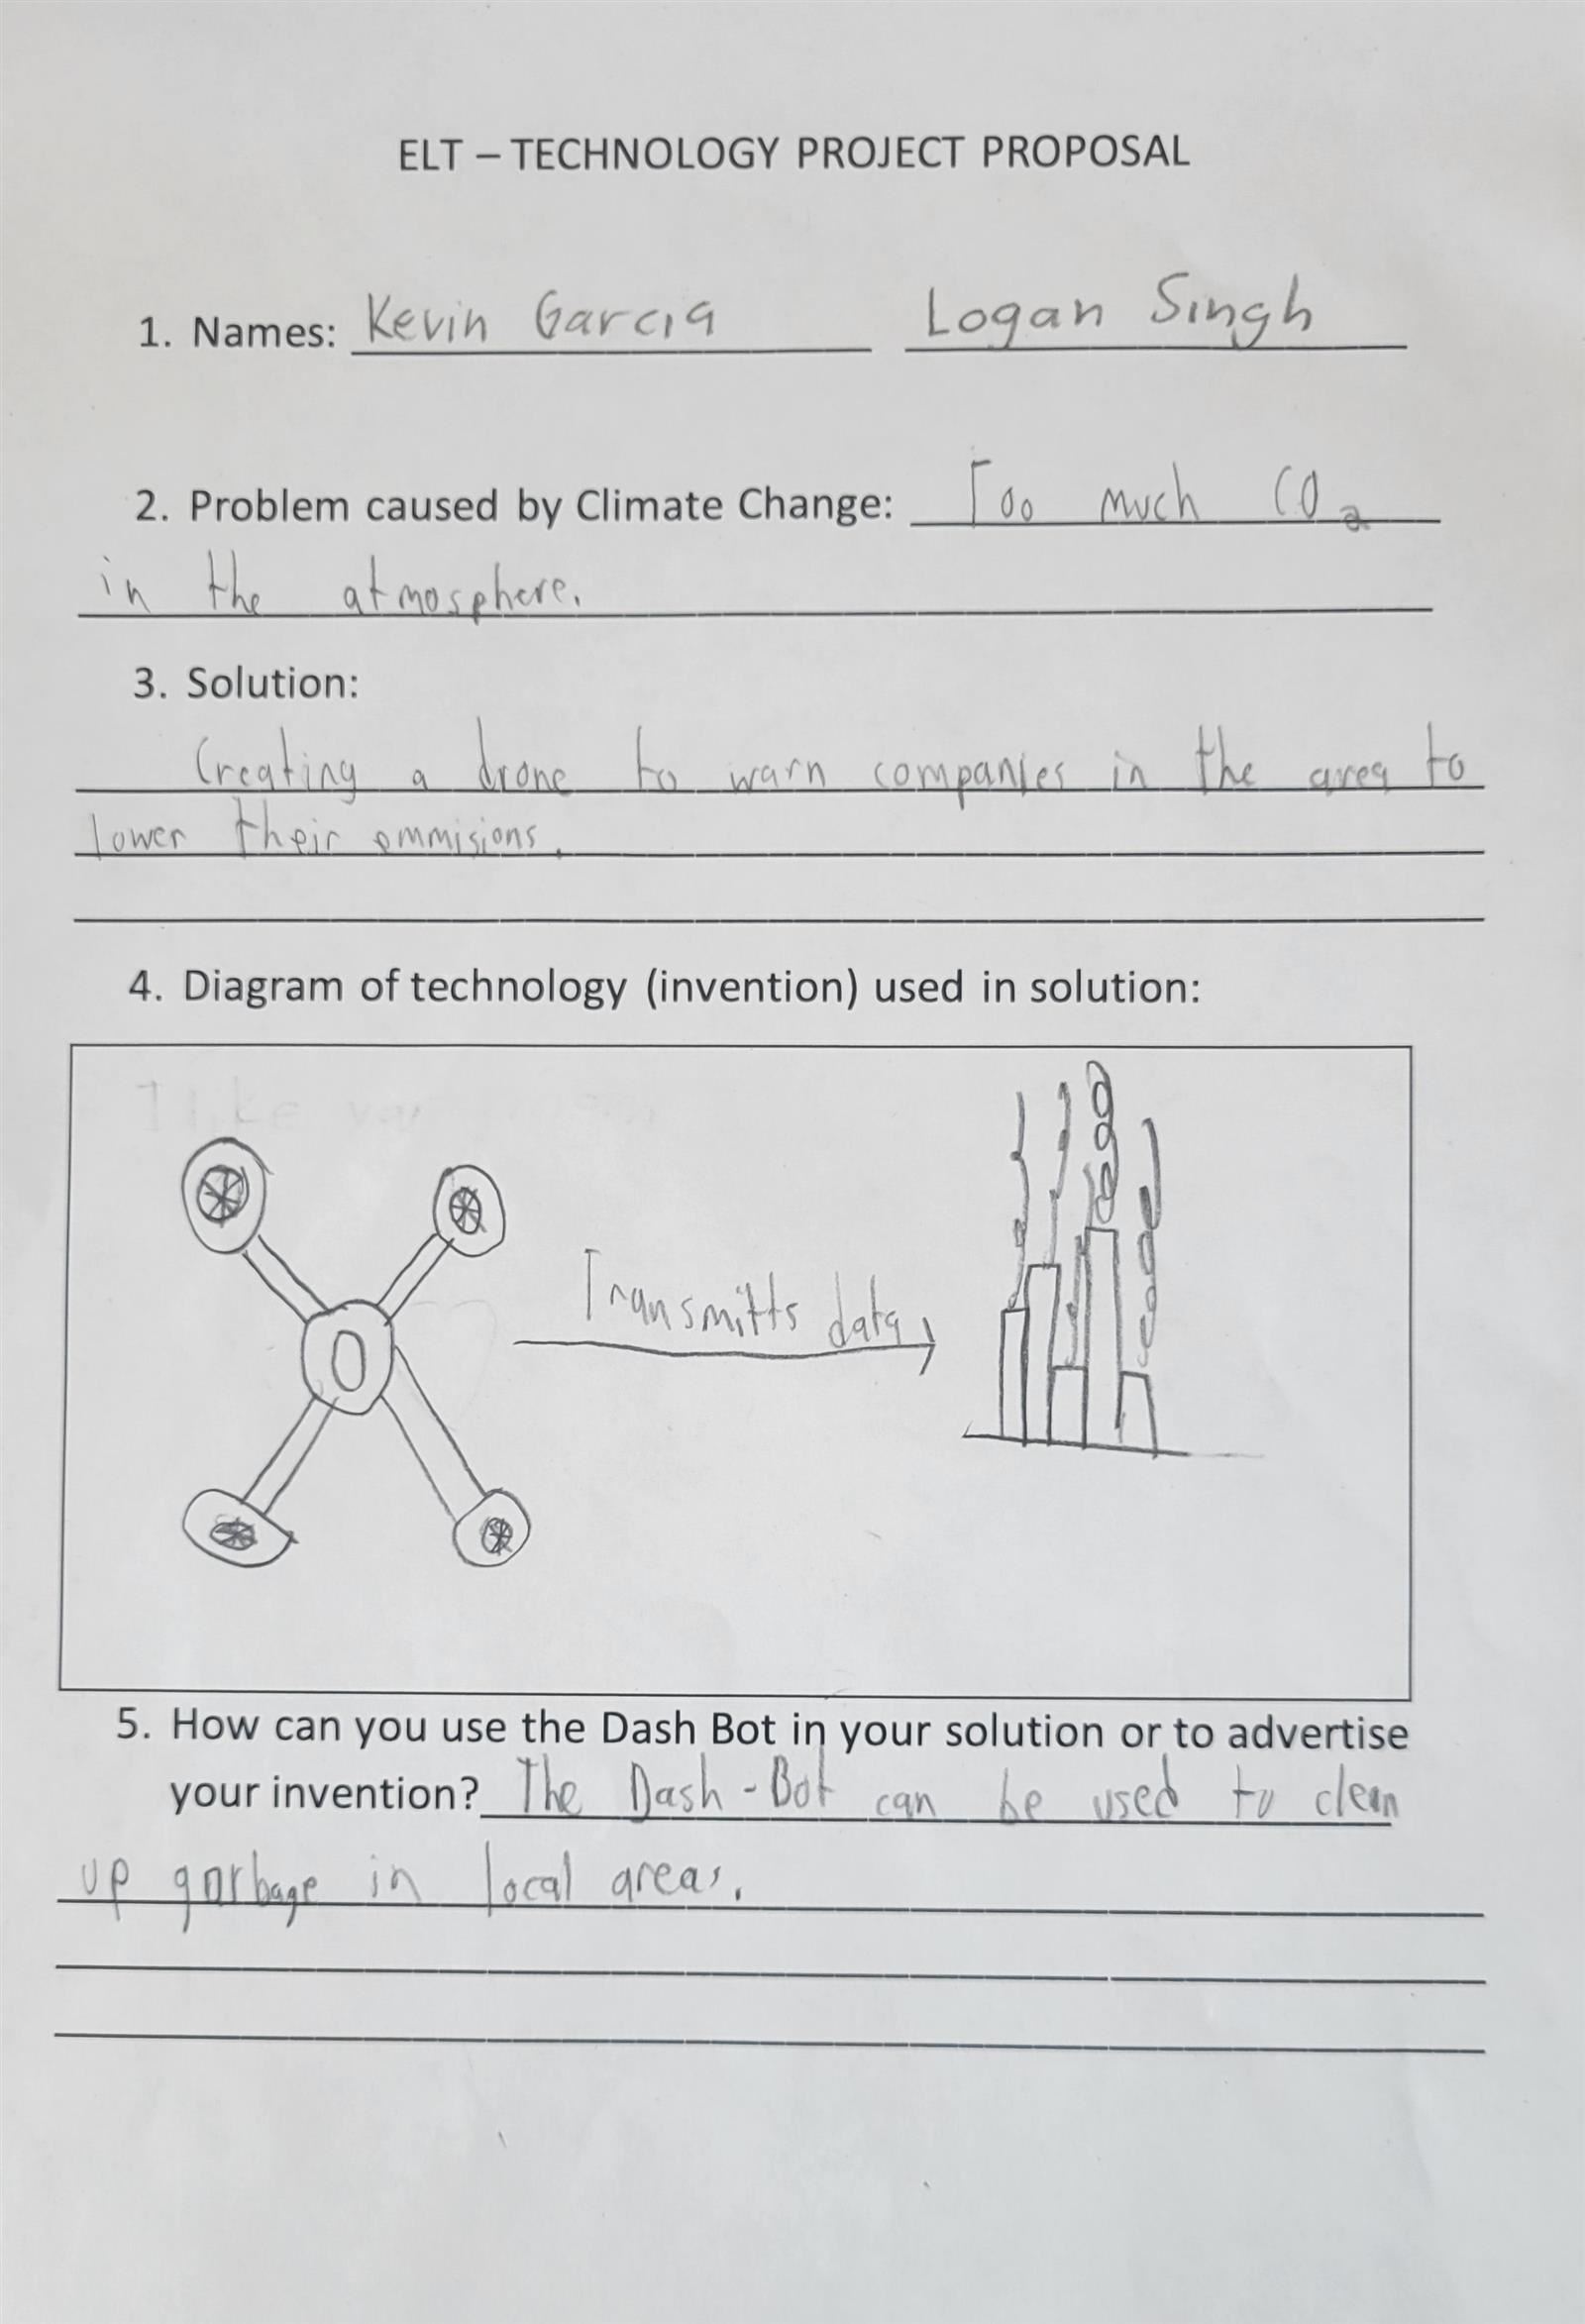 ELT – TECHNOLOGY PROJECT PROPOSAL
1. Names: Kevin Garcia Logan Singh
2. Problem caused by Climate Change: Too much CO2
in the atmosphere.
3. Solution:
Creating a drone to warn companies in the area to
lower their emmisions.
4. Diagram of technology (invention) used in solution:
I like
Transmitts data
5. How can you use the Dash Bot in your solution or to advertise
your invention? The Dash-Bot can be used to clean
up garbage in local areas.